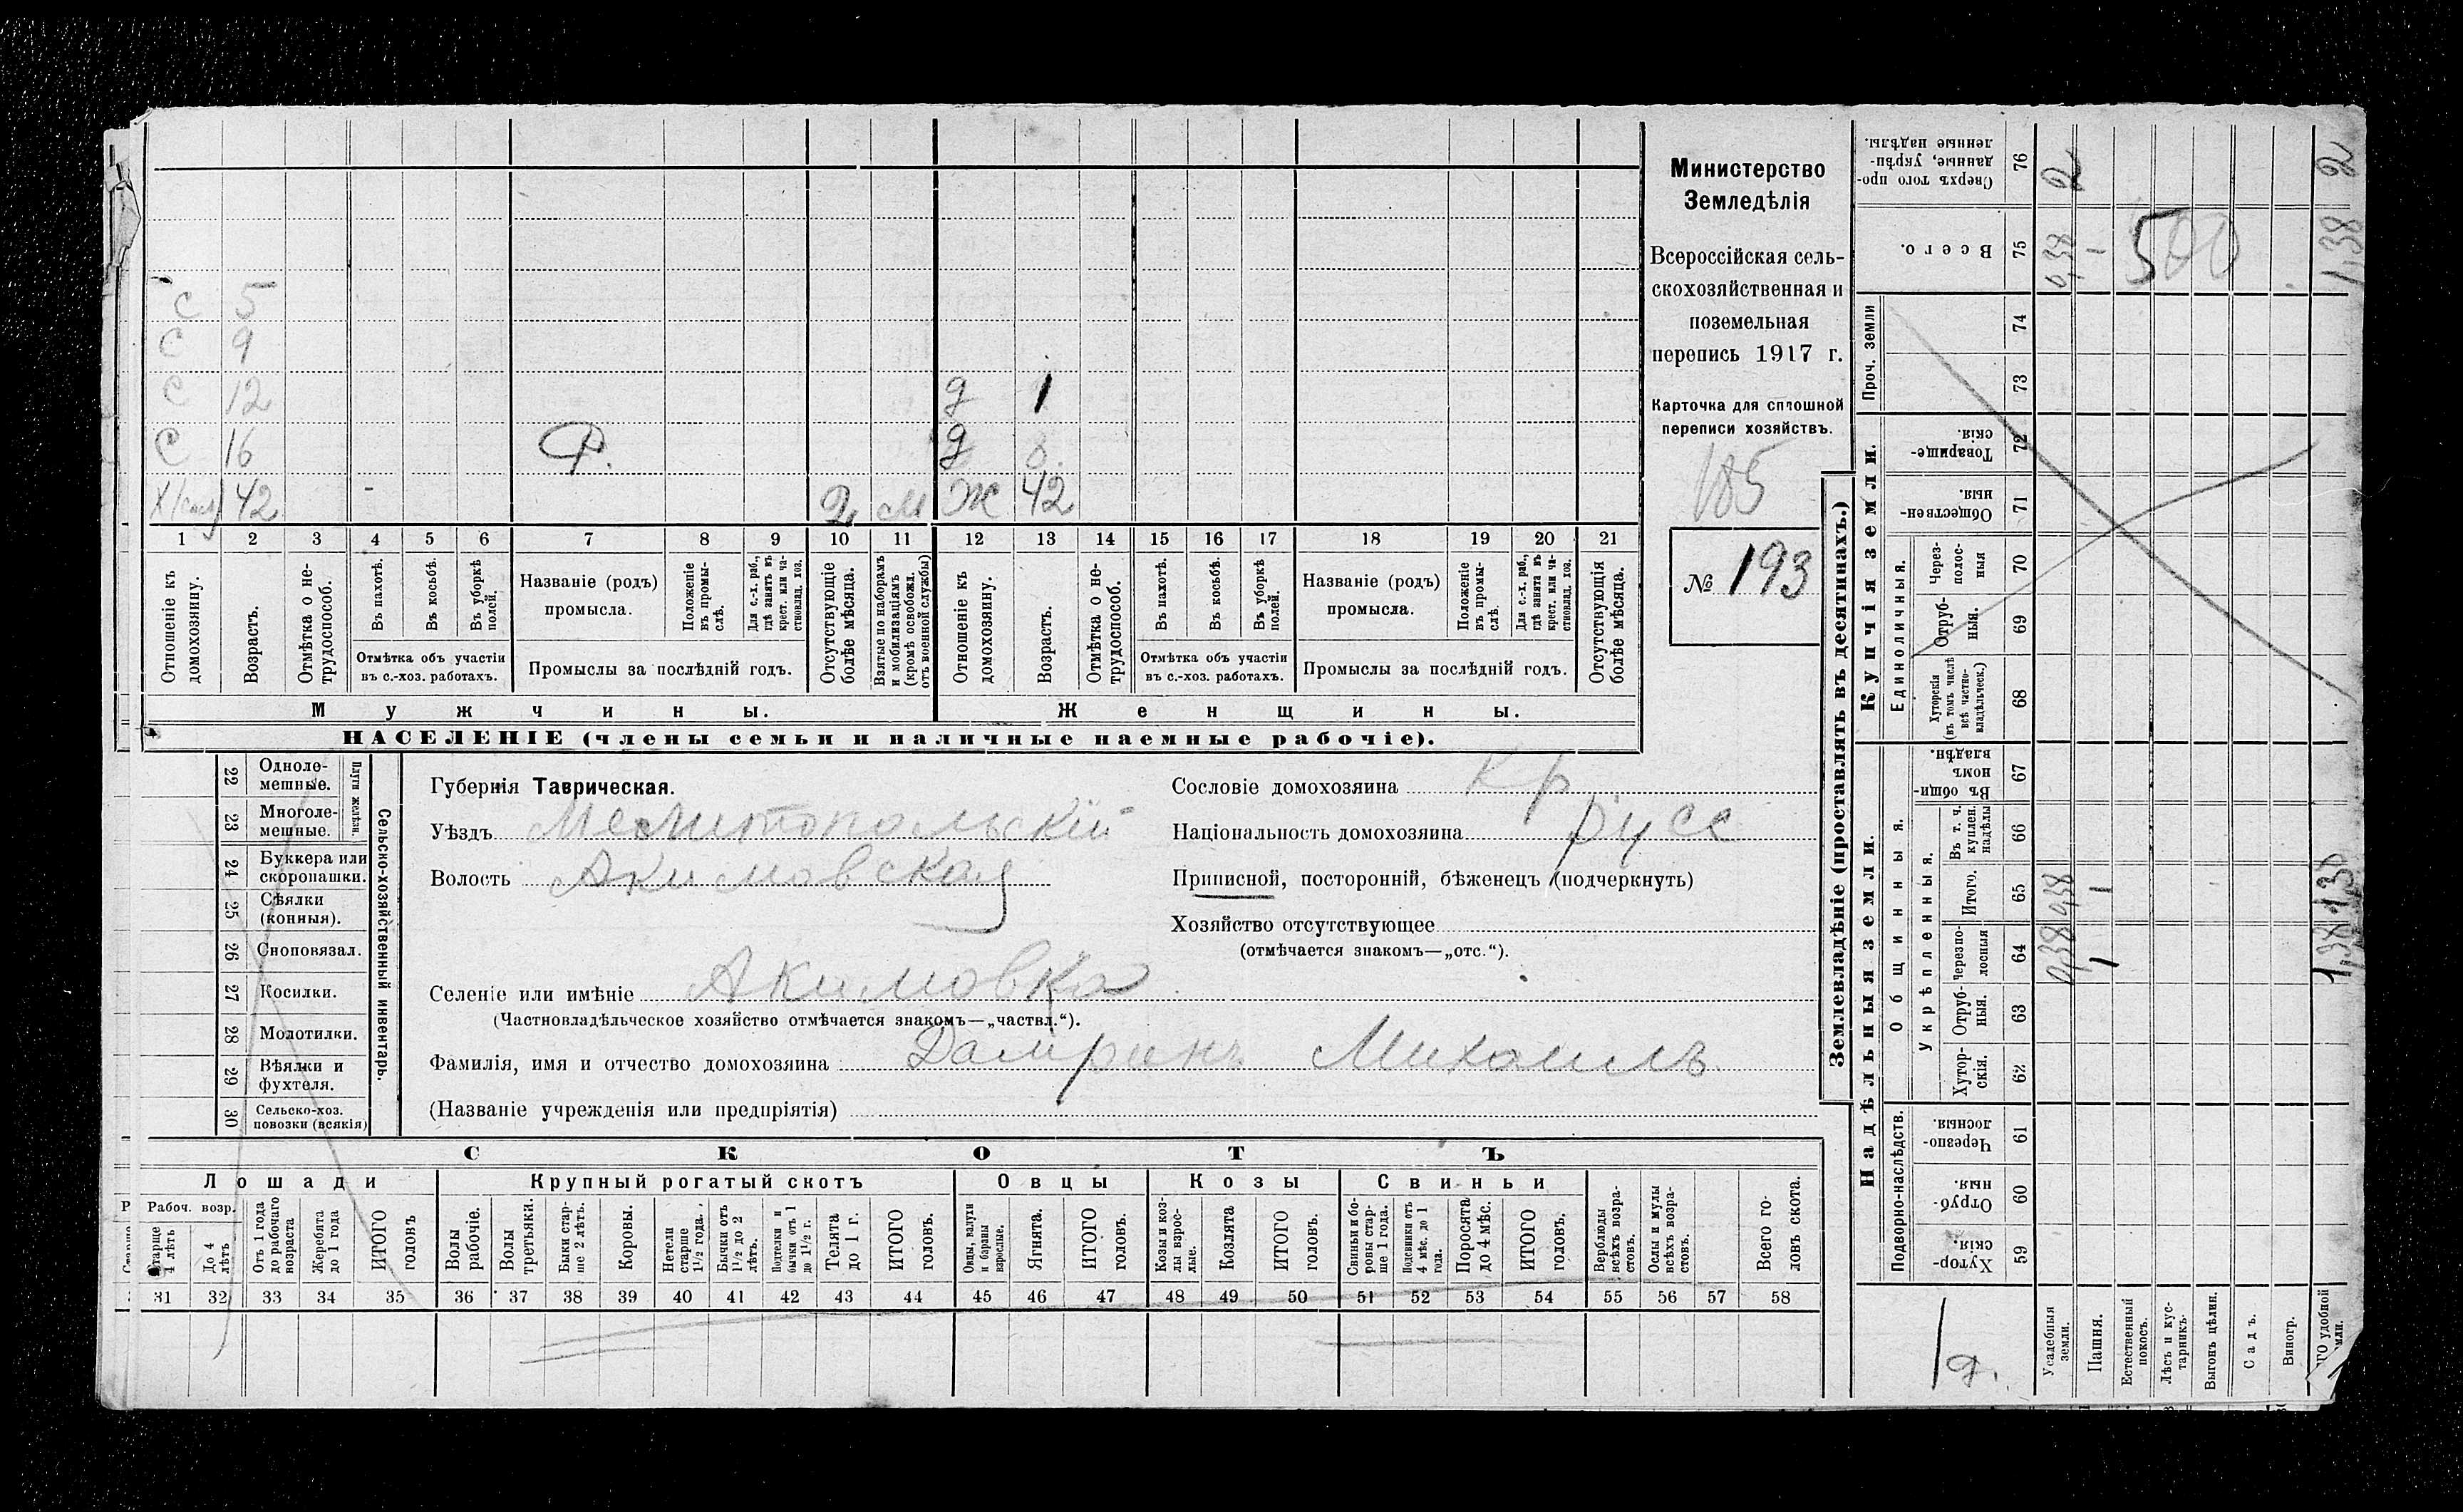 С 5
С 9
С 12 д 1
С 16 Ф. д
42 2 м Ж 42
1 2 3 4 5 6 7 8 9 10 11 12 13 14 15 16 17 18 19 20 21
Отношеніе къ домохозяину.
Возрастъ.
Отмѣтка о не-трудоспособ.
Въ пахотѣ.
Въ косьбѣ.
Въ уборкѣ полей.
Отмѣтка объ участіи
въ с.-хоз. работахъ.
Названіе (родъ)
промысла.
Положеніе въ промы-слѣ.
Для с.-х. раб., гдѣ занятъ въ крест. или ча-стновлад. хоз.
Промыслы за послѣдній годъ.
Отсутствующіе болѣе мѣсяца.
Взятые по наборамъ и мобилизаціямъ (кромѣ освобожд. отъ военной службы)
Отношеніе къ домохозяину.
Возрастъ.
Отмѣтка о не-трудоспособ.
Въ пахотѣ.
Въ косьбѣ.
Въ уборкѣ полей.
Отмѣтка объ участіи
въ с.-хоз. работахъ.
Названіе (родъ)
промысла.
Положеніе въ промы-слѣ.
Для с.-х. раб., гдѣ занята въ крест. или ча-стновлад. хоз.
Промыслы за послѣдній годъ.
Отсутствующія болѣе мѣсяца.
Мужчины.
Женщины.
НАСЕЛЕНІЕ (члены семьи и наличные наемные рабочіе).
Министерство
Земледѣлія
Всероссійская сель-
скохозяйственная и
поземельная
перепись 1917 г.
Карточка для сплошной
переписи хозяйствъ.
185
№ 193
22 Одноле-мешные.
23 Многоле-мешные.
Плуги желѣзн.
24 Буккера или скоропашки.
25 Сѣялки (конныя).
26 Сноповязал.
27 Косилки.
28 Молотилки.
29 Вѣялки и фухтеля.
30 Сельско-хоз. повозки (всякія)
Сельско-хозяйственный инвентарь.
Губернія Таврическая.
Уѣздъ Мелитопольскій
Волость Акимовская
Селеніе или имѣніе Акимовка
(Частновладѣльческое хозяйство отмѣчается знакомъ—„частвл.“).
Фамилія, имя и отчество домохозяина Михаилъ
(Названіе учрежденія или предпріятія)
Сословіе домохозяина Кр
Національность домохозяина русс
Приписной, посторонній, бѣженецъ (подчеркнуть)
Хозяйство отсутствующее
(отмѣчается знакомъ—„отс.“).
СКОТЪ
Лошади
Крупный рогатый скотъ
Овцы
Козы
Свиньи
Рабоч. возр.
Старше 4 лѣтъ
До 4 лѣтъ
Отъ 1 года до рабочаго возраста
Жеребята до 1 года
ИТОГО головъ
Волы рабочіе.
Волы третьяки.
Быки стар-ше 2 лѣтъ.
Коровы.
Нетели старше 1½ года.
Бычки отъ 1½ до 2 лѣтъ.
Подтелки и бычки отъ 1 до 1½ г.
Телята до 1 г.
ИТОГО головъ.
Овцы, валухи и бараны взрослые.
Ягнята.
ИТОГО головъ.
Козы и коз-лы взрос-лые.
Козлята
ИТОГО головъ.
Свиньи и бо-ровы стар-ше 1 года.
Подсвинки отъ 4 мѣс. до 1 года.
Поросята до 4 мѣс.
ИТОГО головъ.
Верблюды всѣхъ возра-стовъ.
Ослы и мулы всѣхъ возра-стовъ.
Всего го-ловъ скота.
31 32 33 34 35 36 37 38 39 40 41 42 43 44 45 46 47 48 49 50 51 52 53 54 55 56 57 58
Землевладѣніе (проставлять въ десятинахъ.)
Надѣльныя земли.
Купчія земли.
Проч. земли
Подворно-наслѣдств.
Общинныя.
Укрѣпленныя.
Единоличныя.
Хутор-скія. 59
Отруб-ныя. 60
Черезпо-лосныя. 61
Хутор-скія. 62
Отруб-ныя. 63
Черезпо-лосныя 64
Итого. 65
Въ т. ч. куплен. надѣлы 66
Въ общи-номъ владѣн. 67
Хуторскія (въ томъ числѣ всѣ частно-владѣльческ.) 68
Отруб-ныя. 69
Через-полос-ныя 70
Обществен-ныя. 71
Товарище-скія. 72
73
74
Всего. 75
Сверхъ того про-данные, укрѣп-ленные надѣлы. 76
Усадебныя земли. 0,38 0,38 0,38 2
Пашня. 1 1 1
Естественный покосъ.
Лѣсъ и кус-тарникъ.
Выгонъ цѣлин.
Садъ.
Виногр.
1,38 1,38 1,38 2
500
1 д.